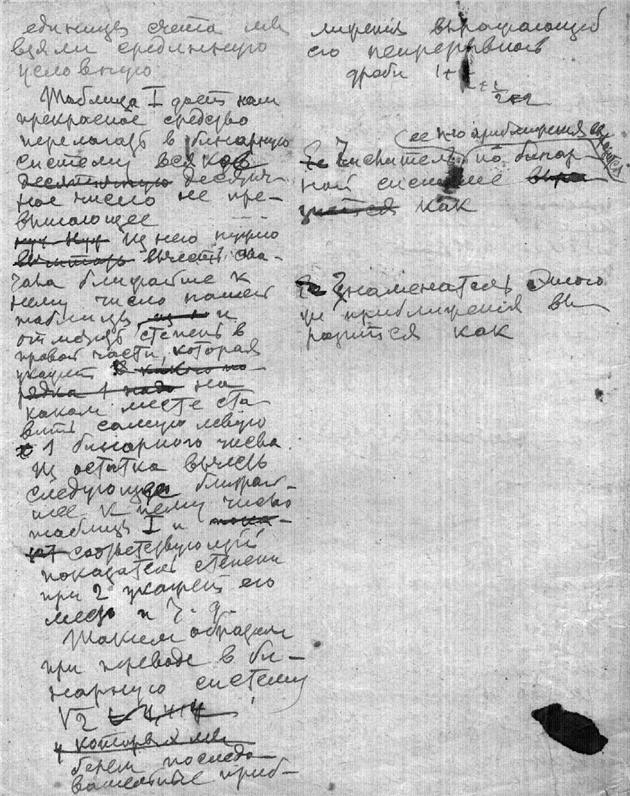 единицу счета мы
взяли срединную
условную
Таблица I дает нам
прекрасное средство
перелагать в бинарную
систему всякое
десятичную десятич-
ное число не пре-
вышающее
из него нужно
вычесть сна-
чала ближайшее к
нему число нашей
таблицы и
отметить степень в
правой части, которая
укажет в какого по-
рядка 1 надо на
каком месте ста-
вить самую левую
1 бинарного числа.
Из остатка вычесть
следующее ближай-
шее к нему число
таблицы I и пока-
соответствующий
показатель степени
при 2 укажет его
место и т. д.
Таким образом
при переводе в би-
нарную систему
√2
у которых мы
берем последо-
вательные приб-
лижения выражающей
его непрерывной
дроби 1+
ее приближения
Числитель по бинар-
ной системе выра-
как
Знаменатель этого
приближения вы-
разится как